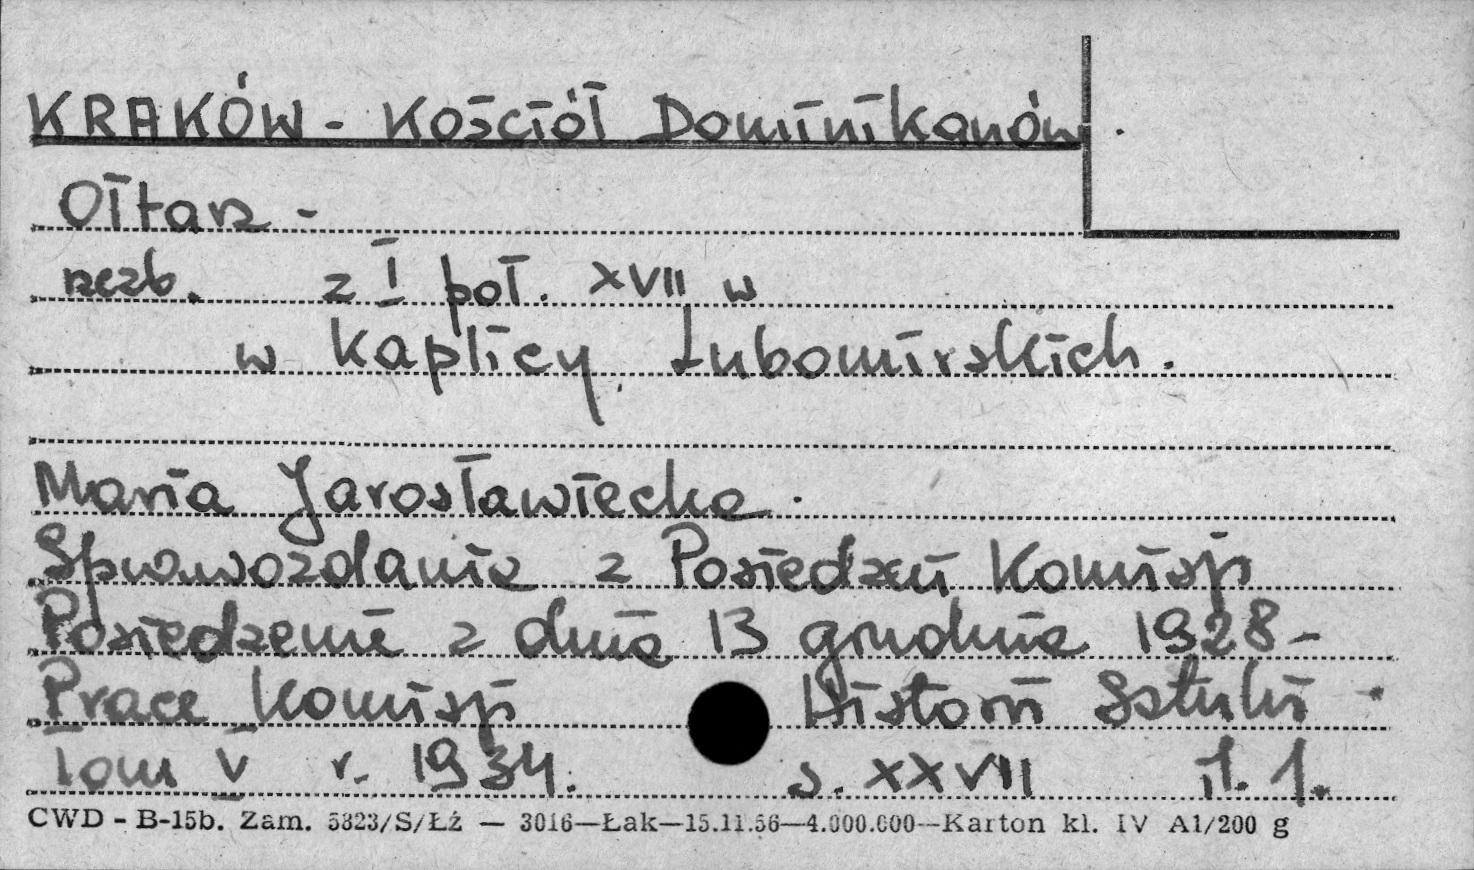 KRAKÓW - Kościół Dominikanów.
Ołtarz -
rzeźb. z I poł. XVII w
w kaplicy Lubomirskich.
Maria Jarosławiecka.
Sprawozdanie z Posiedzeń Komisji
Posiedzenie z dnia 13 grudnia 1928 -
Prace Komisji Historii Sztuki
Tom V r. 1934. s. XXVII il. 1.
CWD - B-15b. Zam. 5323/S/Łż — 3016—Łak—15.11.56—4.000.000—Karton kl. IV A1/200 g